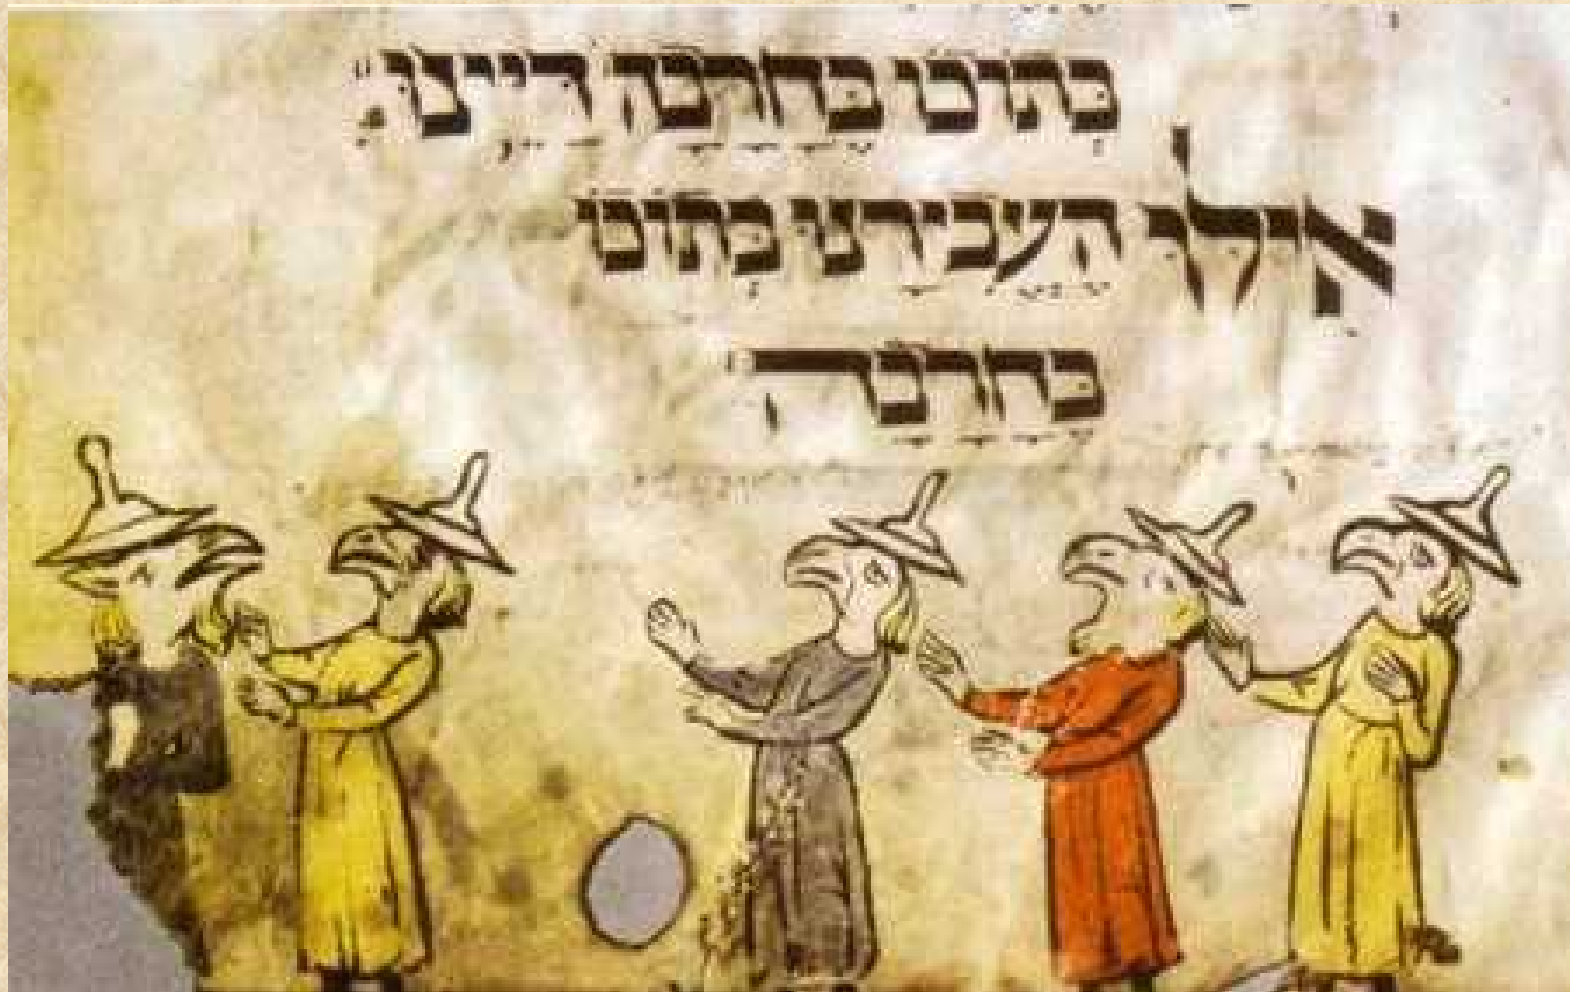 בתוכו בחרבה דיינו׃
אילו העבירנו בתוכו
בחרבה